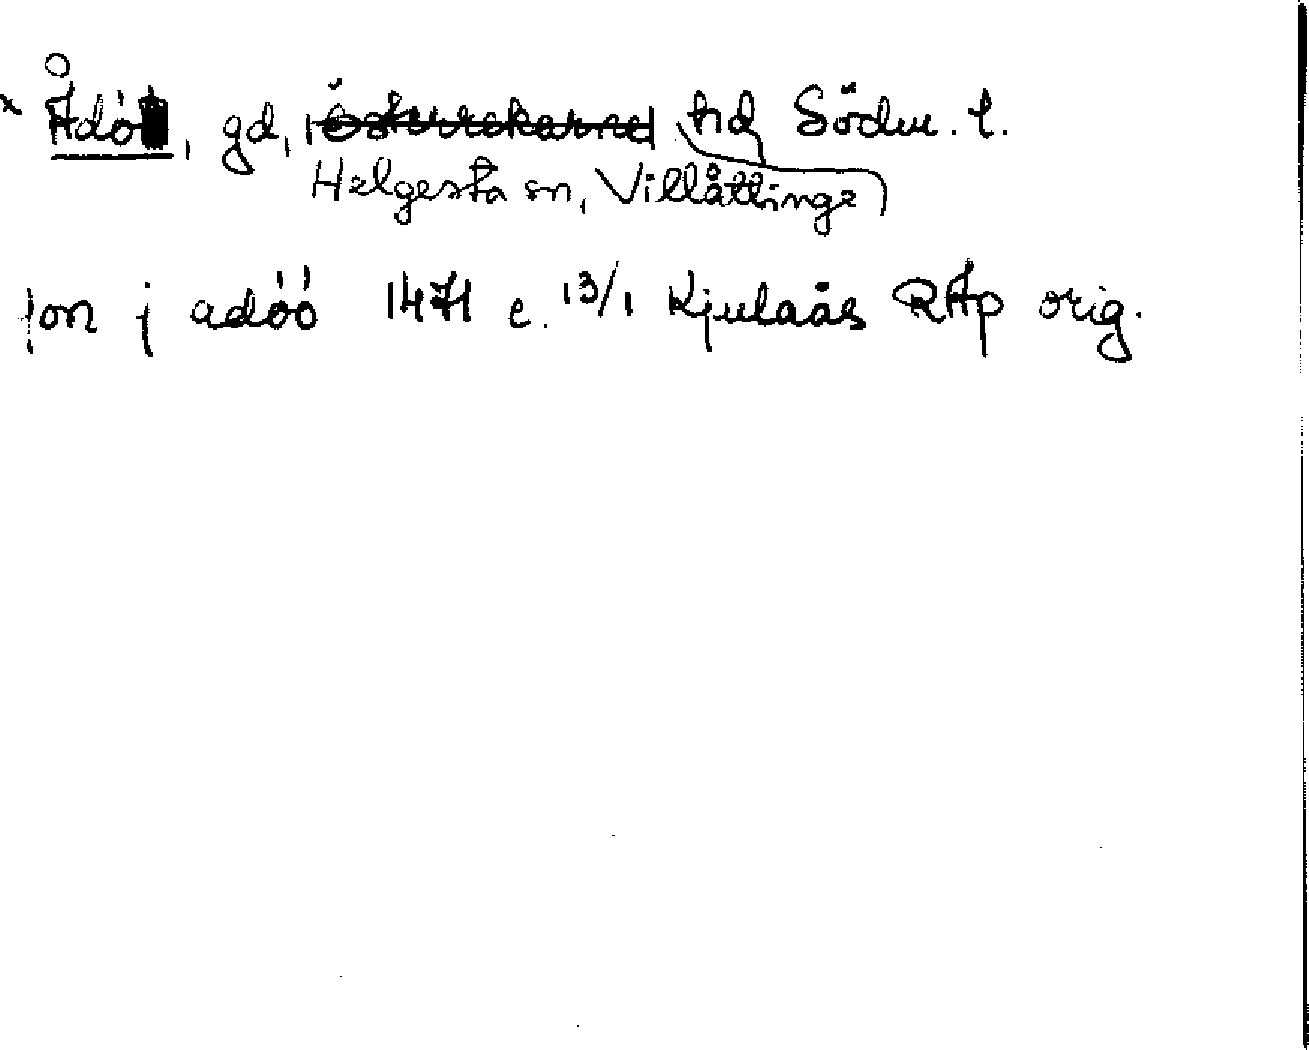 × Ådö, gd, Österrekarne hd Södm. l.
Helgesta sn, Villåttinge
jon j adóó 1471 e. 13/1 Kjulaås RAp orig.